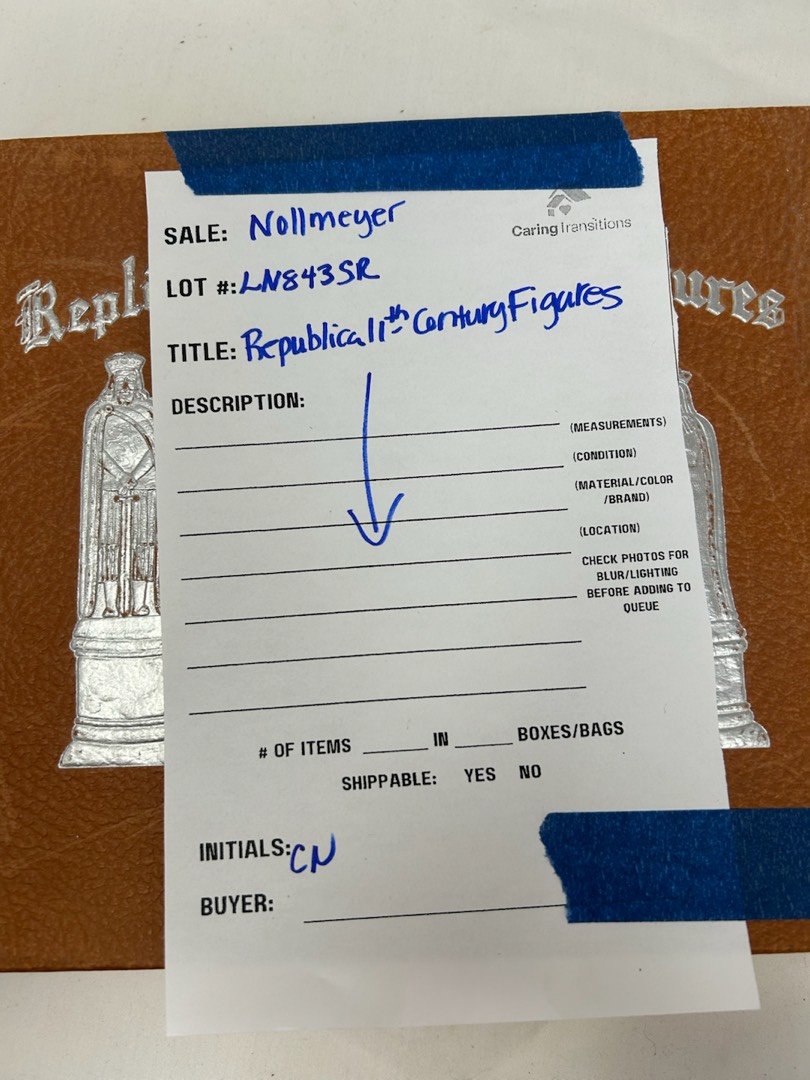 SALE: Nollmeyer
CaringTransitions
LOT #: LN843SR
Repli
ures
TITLE: Republica 11th Century Figures
DESCRIPTION:
(MEASUREMENTS)
(CONDITION)
(MATERIAL/COLOR
/BRAND)
(LOCATION)
CHECK PHOTOS FOR
BLUR/LIGHTING
BEFORE ADDING TO
QUEUE
# OF ITEMS ______ IN ______ BOXES/BAGS
SHIPPABLE: YES NO
INITIALS: CN
BUYER: